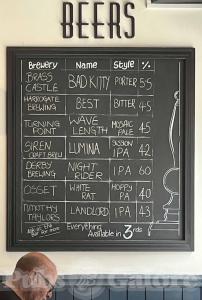 BEERS
Brewery Name Style %
BRASS CASTLE BAD KITTY PORTER 5.5
HARROGATE BREWING BEST BITTER 4.5
TURNING POINT WAVE LENGTH MOSAIC PALE 4.5
SIREN CRAFT BREW LUMINA SESSION IPA 4.2
DERBY BREWING NIGHT RIDER IPA 6.0
OSSET WHITE RAT HOPPY PA 4.0
TIMOTHY TAYLORS LANDLORD IPA 4.3
Everything
Available in 3rds
Pubs Galore